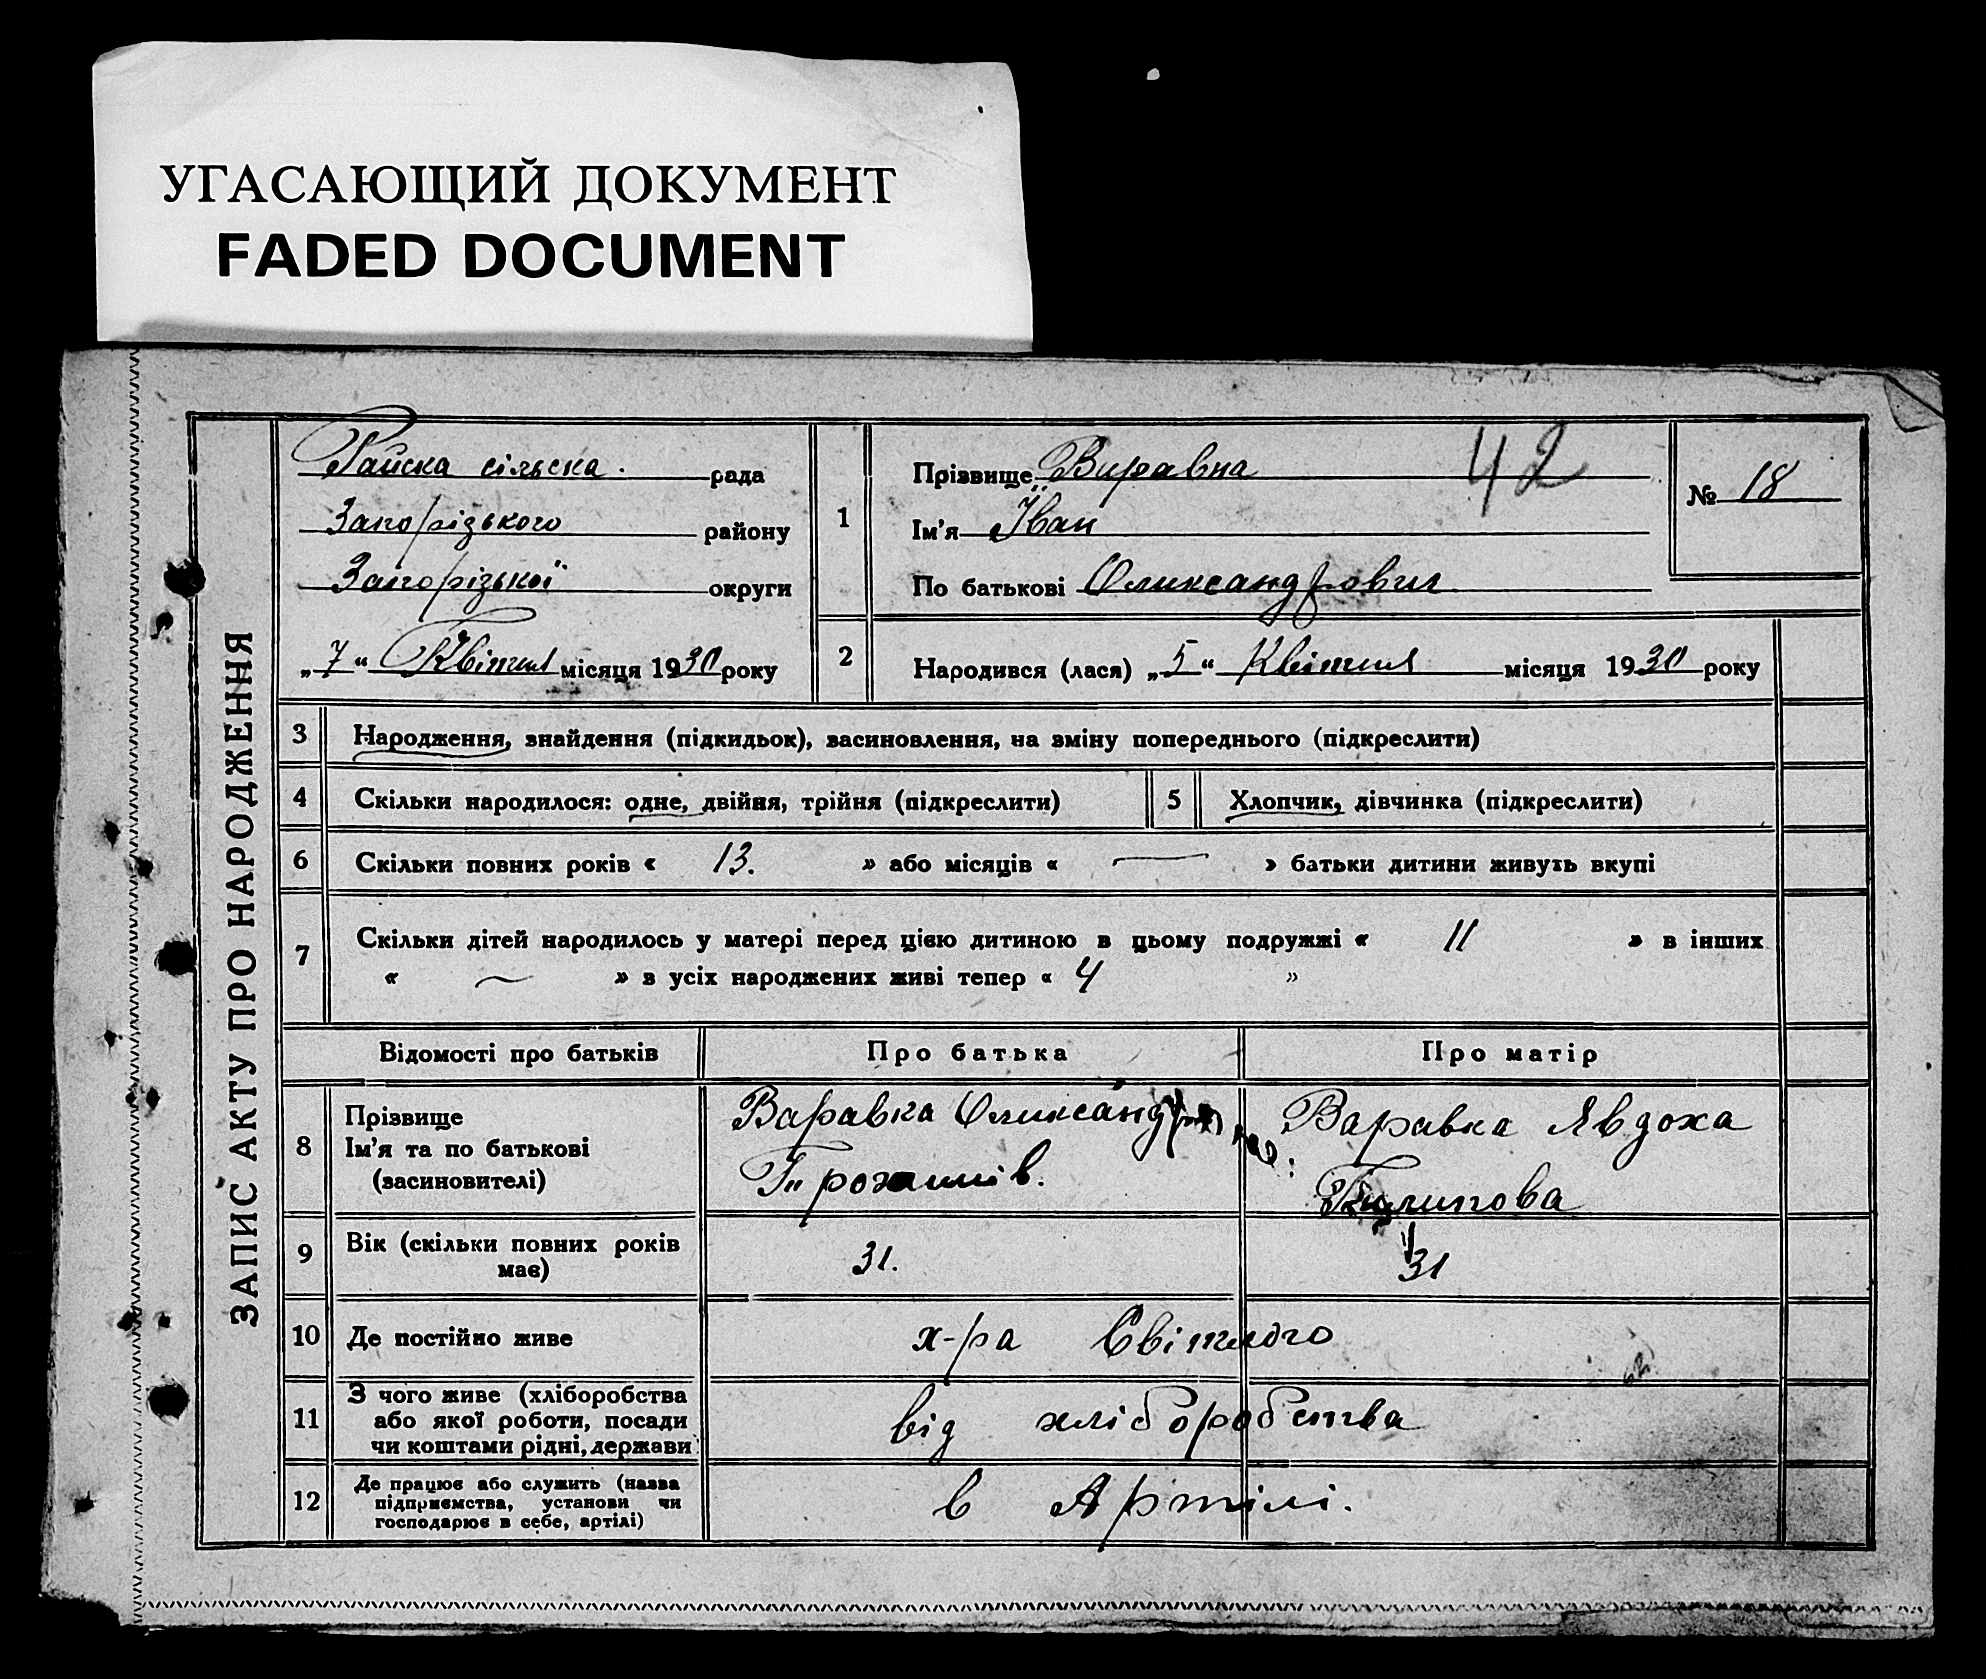 УГАСАЮЩИЙ ДОКУМЕНТ
FADED DOCUMENT
ЗАПИС АКТУ ПРО НАРОДЖЕННЯ
Райська сільска. рада
Запорізького району
Запорізької округи
„7“ Квітня місяця 1930 року
1
Прізвище Виравка
Ім'я Іван
По батькові Олександрович
42
№ 18
2
Народився (лася) „5“ Квітня місяця 1930 року
3 Народження, знайдення (підкидьок), васиновлення, на зміну попереднього (підкреслити)
4 Скільки народилося: одне, двійня, трійня (підкреслити) 5 Хлопчик, дівчинка (підкреслити)
6 Скільки повних років « 13. » або місяців « — » батьки дитини живуть вкупі
7 Скільки дітей народилось у матері перед цією дитиною в цьому подружжі « 11 » в інших
« — » з усіх народжених живі тепер « 4 »
Відомості про батьків Про батька Про матір
8 Прізвище
Ім'я та по батькові
(васиновителі)
Варавка Олександр
Варавка Явдоха
9 Вік (скільки повних років
має)
31. 31
10 Де постійно живе х-ра Світлого
11 З чого живе (хліборобства
або якої роботи, посади
чи коштами рідні, держави
від хліборобства
12 Де працює або служить (назва
підприємства, установи чи
господарює в себе, артілі)
в Артілі.